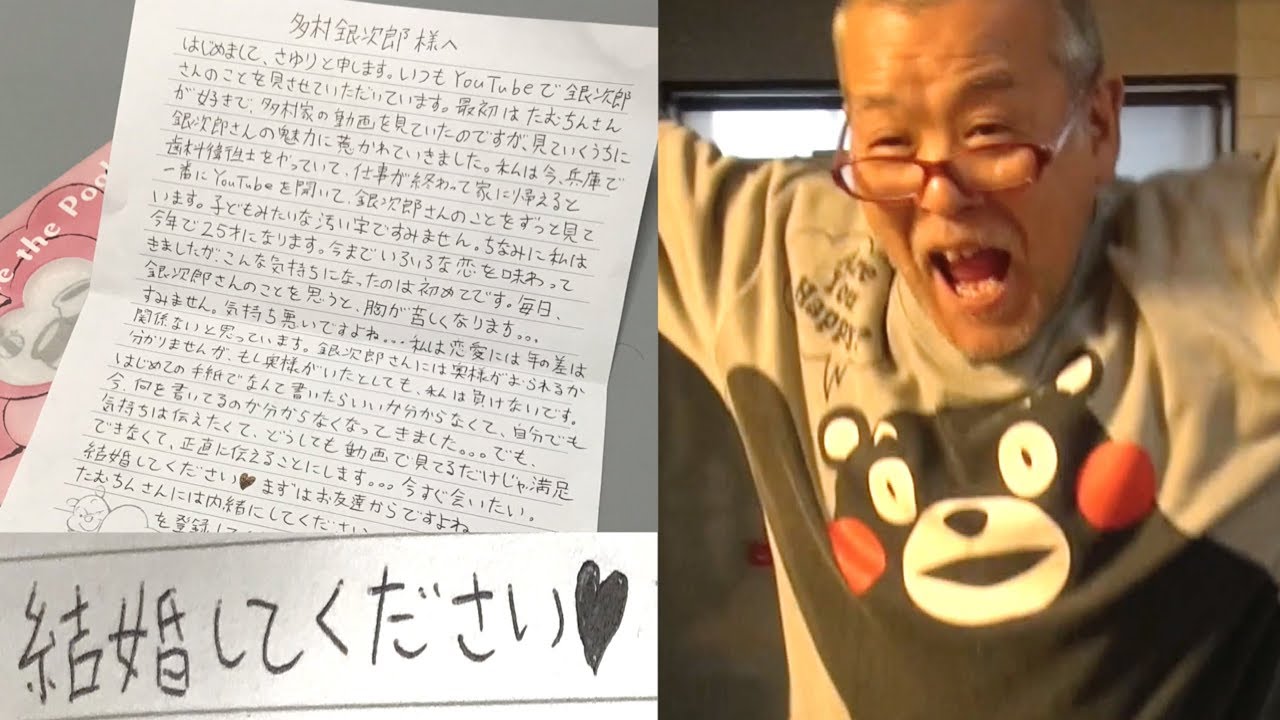 多村銀次郎様へ
はじめまして、さゆりと申します。いつもYouTubeで銀次郎
さんのことを見させていただいています。最初はたむちんさん
が好きで、多村家の動画を見ていたのですが、見ていくうちに
銀次郎さんの魅力に惹かれていきました。私は今、兵庫で
歯科衛生士をやっていて、仕事が終わって家に帰えると
一番にYouTubeを開いて、銀次郎さんのことをずっと見て
います。子どもみたいな汚い字ですみません。ちなみに私は
今年で25才になります。今までいろいろな恋を味わって
きましたが、こんな気持ちになったのは初めてです。毎日、
銀次郎さんのことを思うと、胸が苦しくなります。。。
すみません。気持ち悪いですよね...私は恋愛には年の差は
関係ないと思っています。銀次郎さんには奥様がおられるか
分かりませんが、もし奥様がいたとしても、私は負けないです。
はじめての手紙でなんて書いたらいいか分からなくて、自分でも
今、何を書いてるのか分からなくなってきました。。。でも、
気持ちは伝えたくて、どうしても動画で見てるだけじゃ満足
できなくて、正直に伝えることにします。。。今すぐ会いたい。
結婚してください♥まずはお友達からですよね
たむちんさんには内緒にしてください
を登録して
e the Pooh
結婚してください♥
Are
you
Happy?